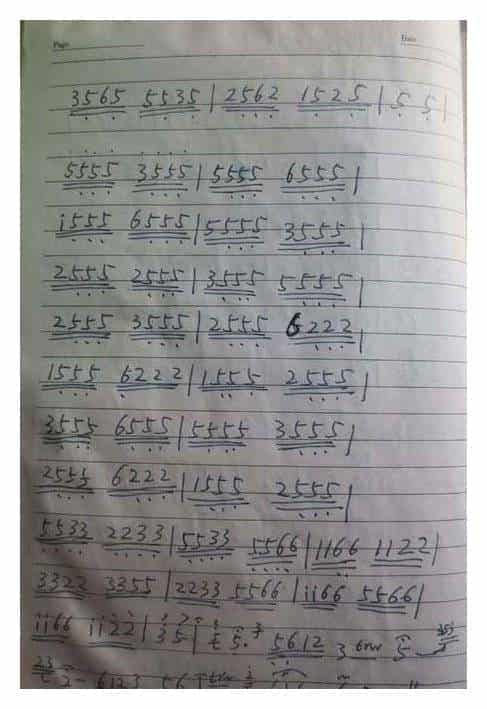 Page Date
3565 5535 | 2562 1525 | 5 5 |
5555 3555 | 5555 6555 |
1555 6555 | 5555 3555 |
2555 2555 | 3555 5555 |
2555 3555 | 2555 6222 |
1555 6222 | 1555 2555 |
3555 6555 | 5555 3555 |
2555 6222 | 1555 2555 |
5533 2233 | 5533 5566 | 1166 1122 |
3322 3355 | 2233 5566 | 1166 5566 |
1166 1122 | 35 | 5. 3 5612 3 5
23 2 6123 56